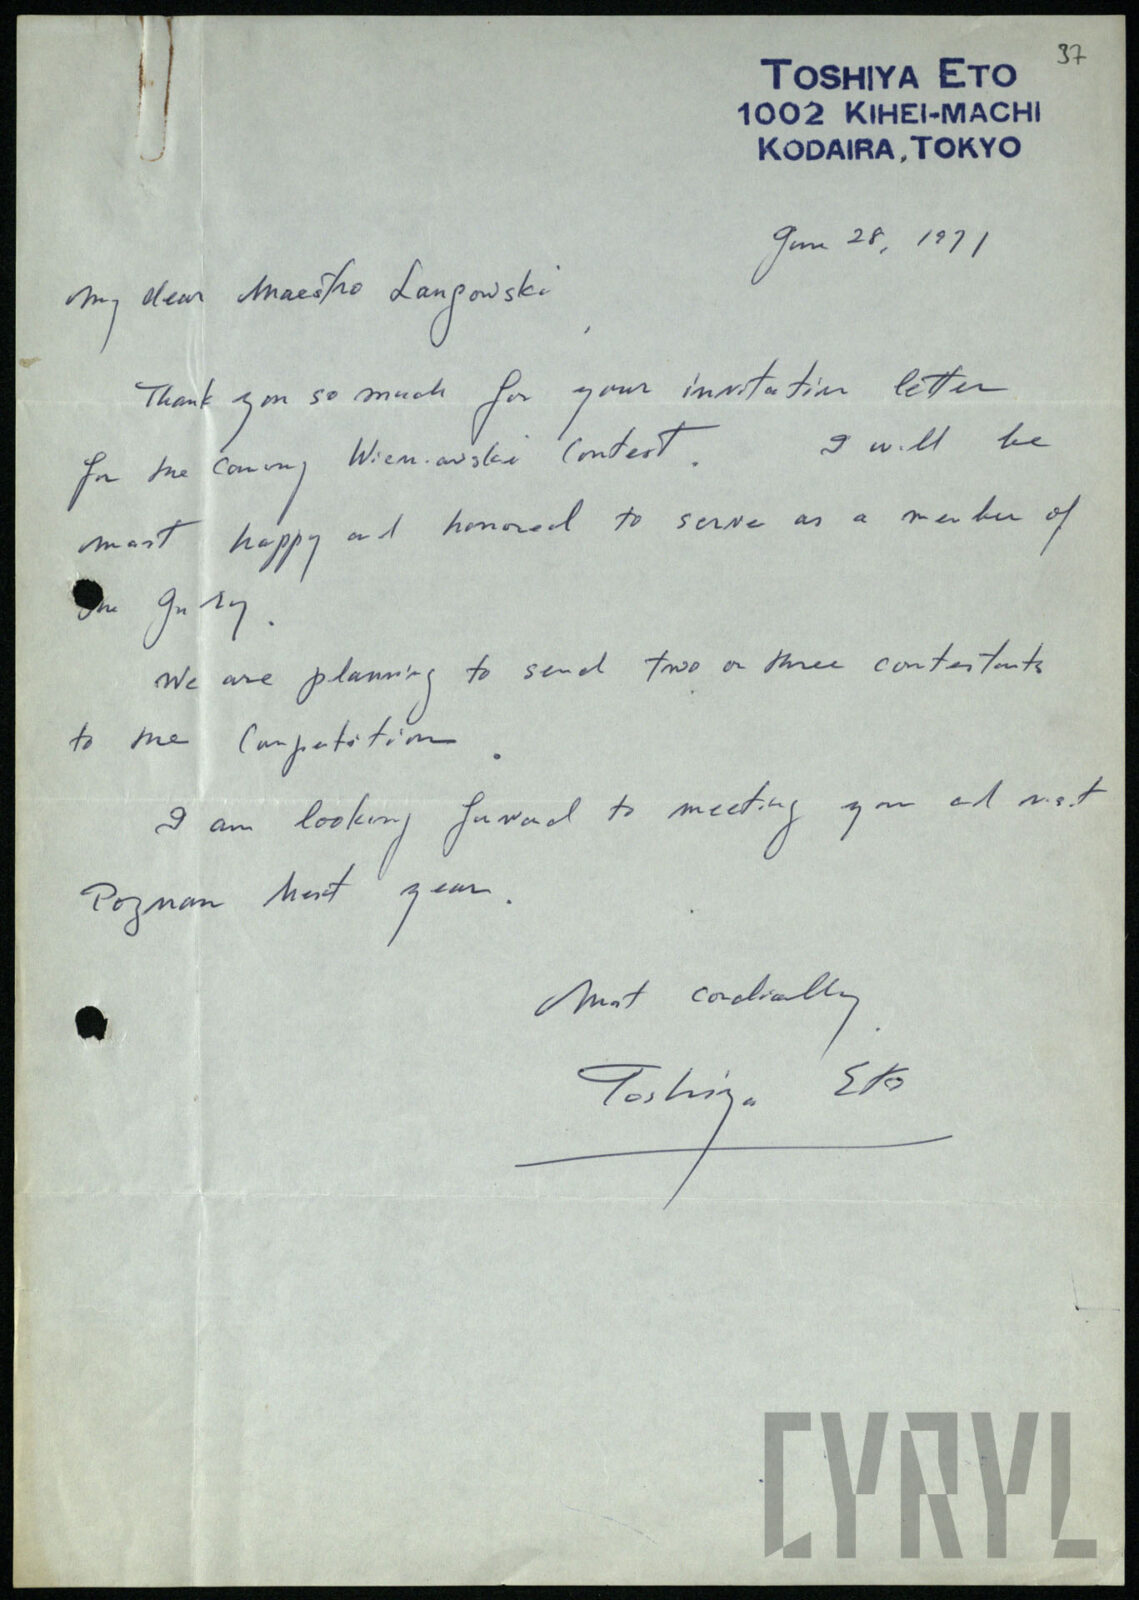 37
TOSHIYA ETO
1002 KIHEI-MACHI
KODAIRA, TOKYO
June 28, 1971
My dear Maestro Langowski,
Thank you so much for your invitation letter
for the coming Wieniawski Contest. I will be
most happy and honored to serve as a member of
the Jury.
We are planning to send two or three contestants
to the Competition.
I am looking forward to meeting you and visit
Poznan next year.
Most cordially,
Toshiya Eto
CYRYL